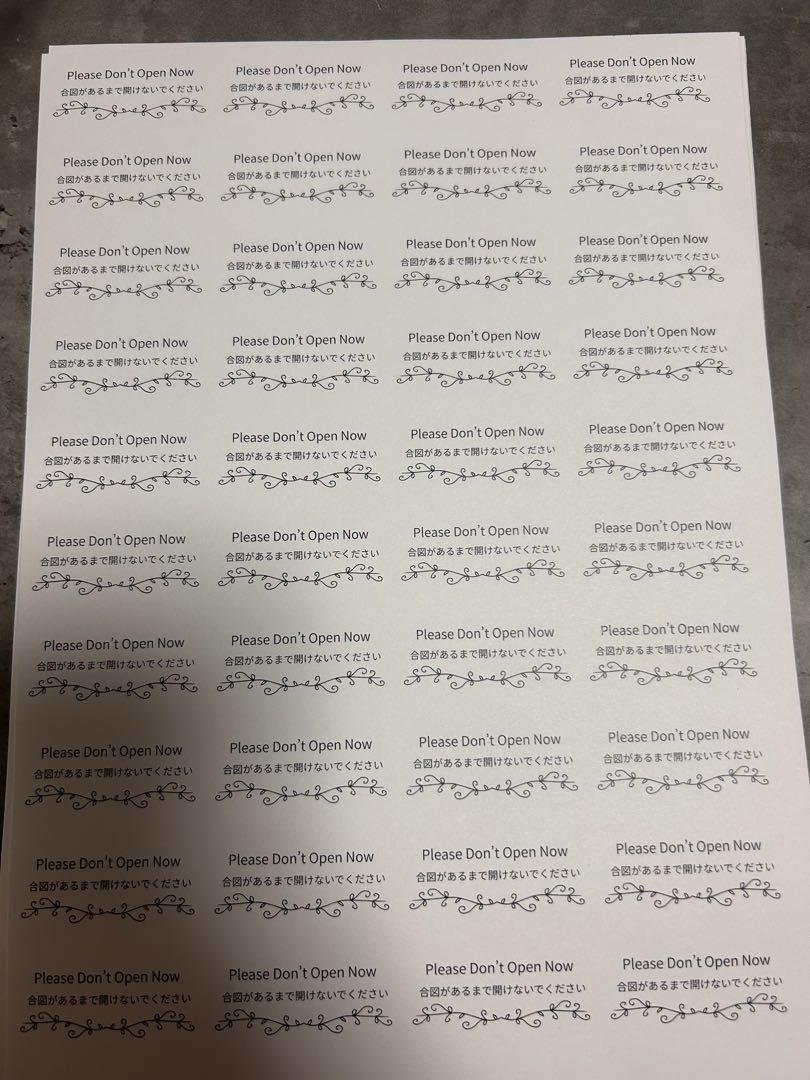 Please Don't Open Now Please Don't Open Now Please Don't Open Now Please Don't Open Now
合図があるまで開けないでください 合図があるまで開けないでください 合図があるまで開けないでください 合図があるまで開けないでください
Please Don't Open Now Please Don't Open Now Please Don't Open Now Please Don't Open Now
合図があるまで開けないでください 合図があるまで開けないでください 合図があるまで開けないでください 合図があるまで開けないでください
Please Don't Open Now Please Don't Open Now Please Don't Open Now Please Don't Open Now
合図があるまで開けないでください 合図があるまで開けないでください 合図があるまで開けないでください 合図があるまで開けないでください
Please Don't Open Now Please Don't Open Now Please Don't Open Now Please Don't Open Now
合図があるまで開けないでください 合図があるまで開けないでください 合図があるまで開けないでください 合図があるまで開けないでください
Please Don't Open Now Please Don't Open Now Please Don't Open Now Please Don't Open Now
合図があるまで開けないでください 合図があるまで開けないでください 合図があるまで開けないでください 合図があるまで開けないでください
Please Don't Open Now Please Don't Open Now Please Don't Open Now Please Don't Open Now
合図があるまで開けないでください 合図があるまで開けないでください 合図があるまで開けないでください 合図があるまで開けないでください
Please Don't Open Now Please Don't Open Now Please Don't Open Now Please Don't Open Now
合図があるまで開けないでください 合図があるまで開けないでください 合図があるまで開けないでください 合図があるまで開けないでください
Please Don't Open Now Please Don't Open Now Please Don't Open Now Please Don't Open Now
合図があるまで開けないでください 合図があるまで開けないでください 合図があるまで開けないでください 合図があるまで開けないでください
Please Don't Open Now Please Don't Open Now Please Don't Open Now Please Don't Open Now
合図があるまで開けないでください 合図があるまで開けないでください 合図があるまで開けないでください 合図があるまで開けないでください
Please Don't Open Now Please Don't Open Now Please Don't Open Now Please Don't Open Now
合図があるまで開けないでください 合図があるまで開けないでください 合図があるまで開けないでください 合図があるまで開けないでください